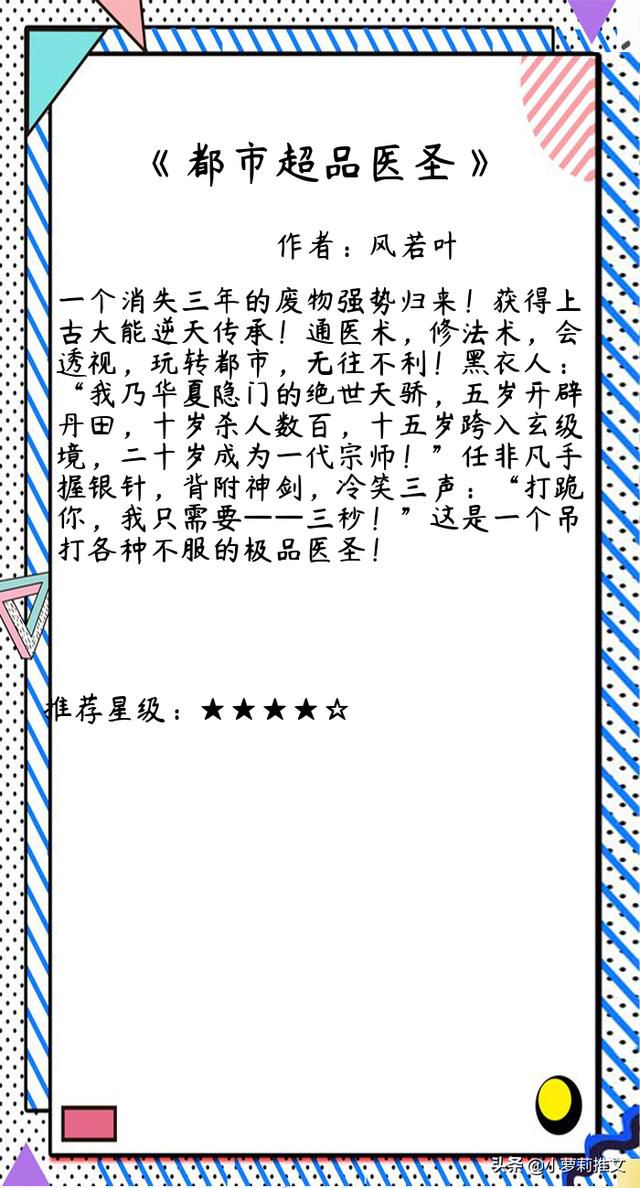 《都市超品医圣》
作者：风若叶
一个消失三年的废物强势归来！获得上
古大能逆天传承！通医术，修法术，会
透视，玩转都市，无往不利！黑衣人：
“我乃华夏隐门的绝世天骄，五岁开辟
丹田，十岁杀人数百，十五岁跨入玄级
境，二十岁成为一代宗师！”任非凡手
握银针，背附神剑，冷笑三声：“打跪
你，我只需要——三秒！”这是一个吊
打各种不服的极品医圣！
推荐星级：★★★★☆
头条 @小萝莉推文